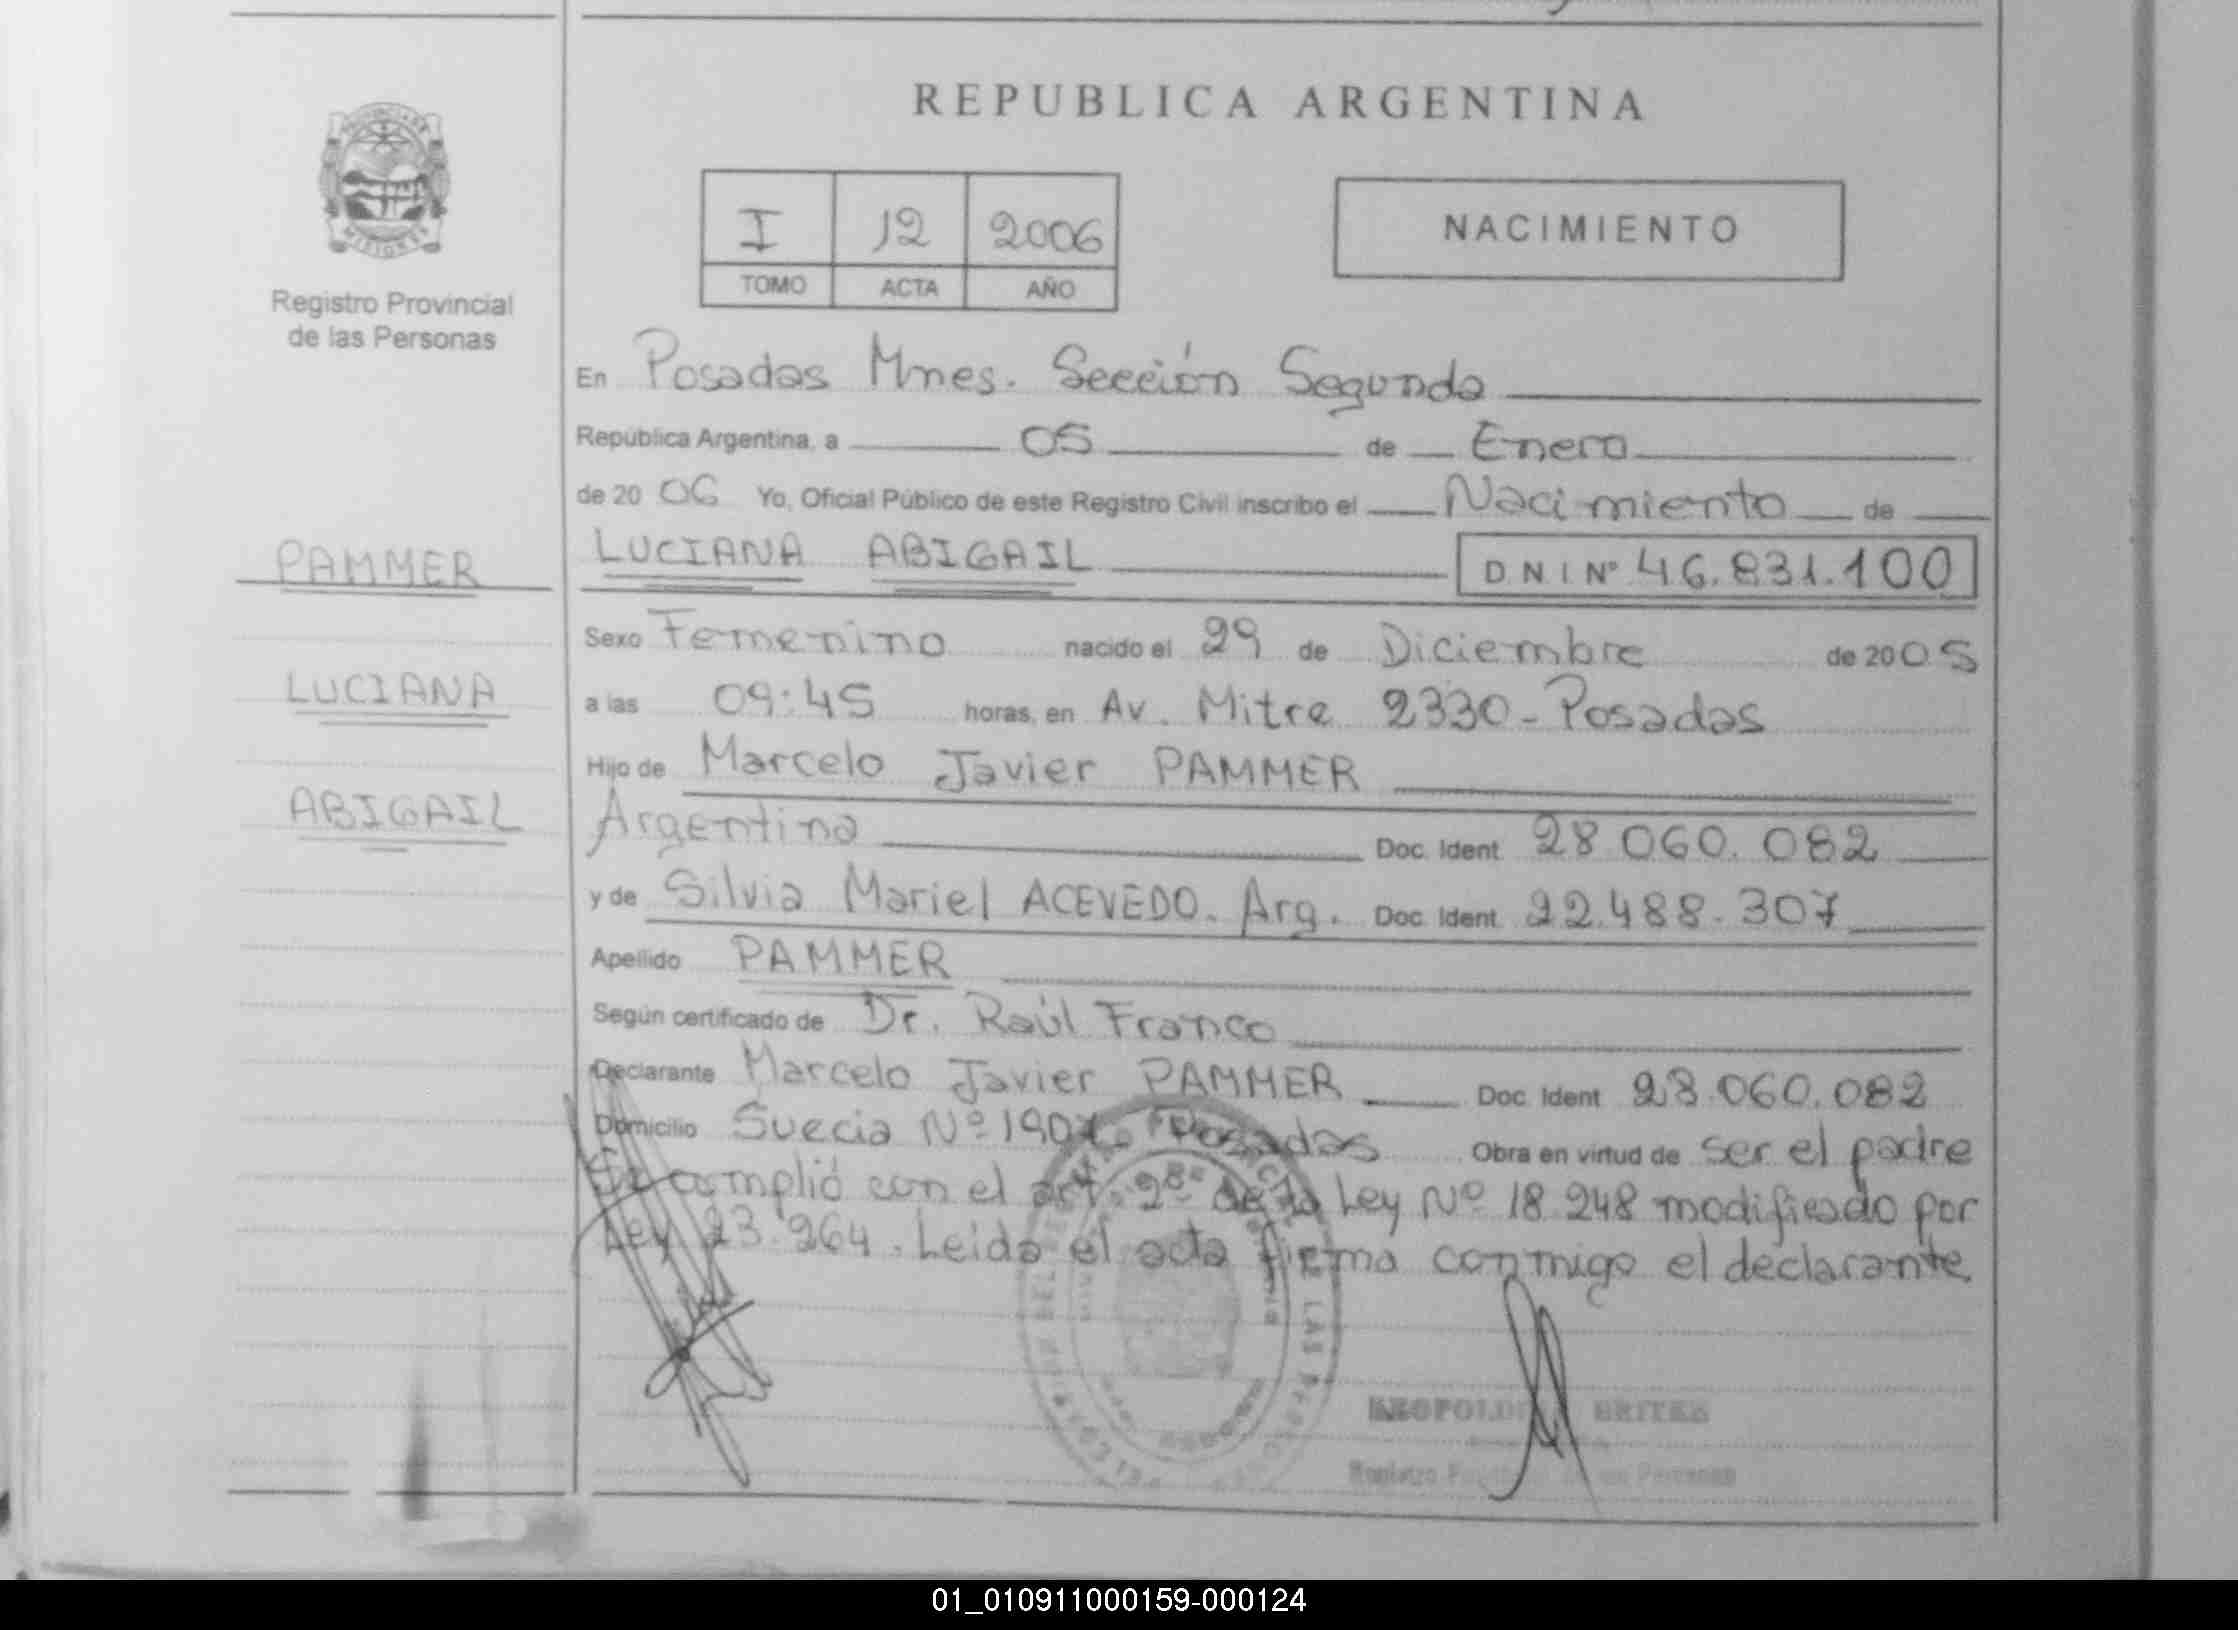 REPUBLICA ARGENTINA
I 12 2006
TOMO ACTA AÑO
NACIMIENTO
PROVINCIA DE
MISIONES
Registro Provincial
de las Personas
PAMMER
LUCIANA
ABIGAIL
En Posadas Mnes. Sección Segunda
República Argentina, a 05 de Enero
de 20 06 Yo, Oficial Público de este Registro Civil inscribo el Nacimiento de
LUCIANA ABIGAIL D N I Nº 46.831.100
Sexo Femenino nacido el 29 de Diciembre de 2005
a las 09:45 horas, en Av. Mitre 2330 - Posadas
Hijo de Marcelo Javier PAMMER
Argentina Doc. Ident. 28.060.082
y de Silvia Mariel ACEVEDO. Arg. Doc. Ident. 22.488.307
Apellido PAMMER
Según certificado de Dr. Raúl Franco
Declarante Marcelo Javier PAMMER Doc. Ident. 28.060.082
Domicilio Suecia Nº 1907 Posadas Obra en virtud de ser el padre
Se cumplió con el art. 2º de la Ley Nº 18.248 modificado por
Ley 23.264. Leida el acta firma conmigo el declarante
BRITEZ
Registro Personas
01_010911000159-000124